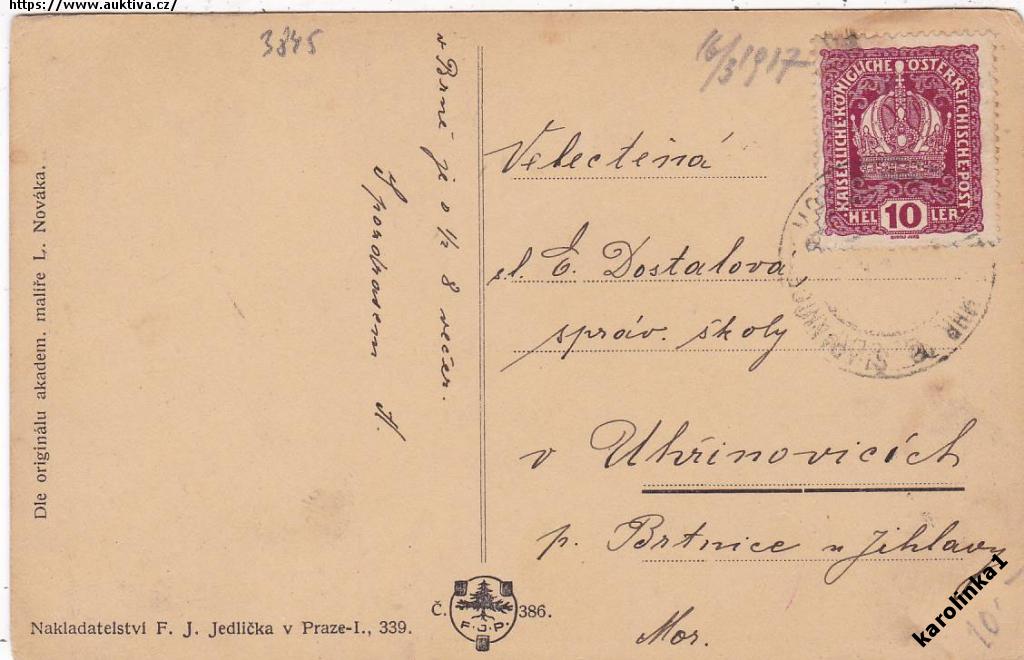 https://www.auktiva.cz/
3845
16/3 1917
v Brně je o 1/2 8 večer.
S pozdrasem A.
Dle originálu akadem. malíře L. Nováka.
KAISERLICHE KÖNIGLICHE ÖSTERREICHISCHE POST
HEL 10 LER
Velectěná
sl. E. Dostalova
správ. školy
v Uhřinovicích
p. Brtnice u Jihlavy
Mor.
Č. 386.
F.J.P.
Nakladatelství F. J. Jedlička v Praze-I., 339.
karolinka1